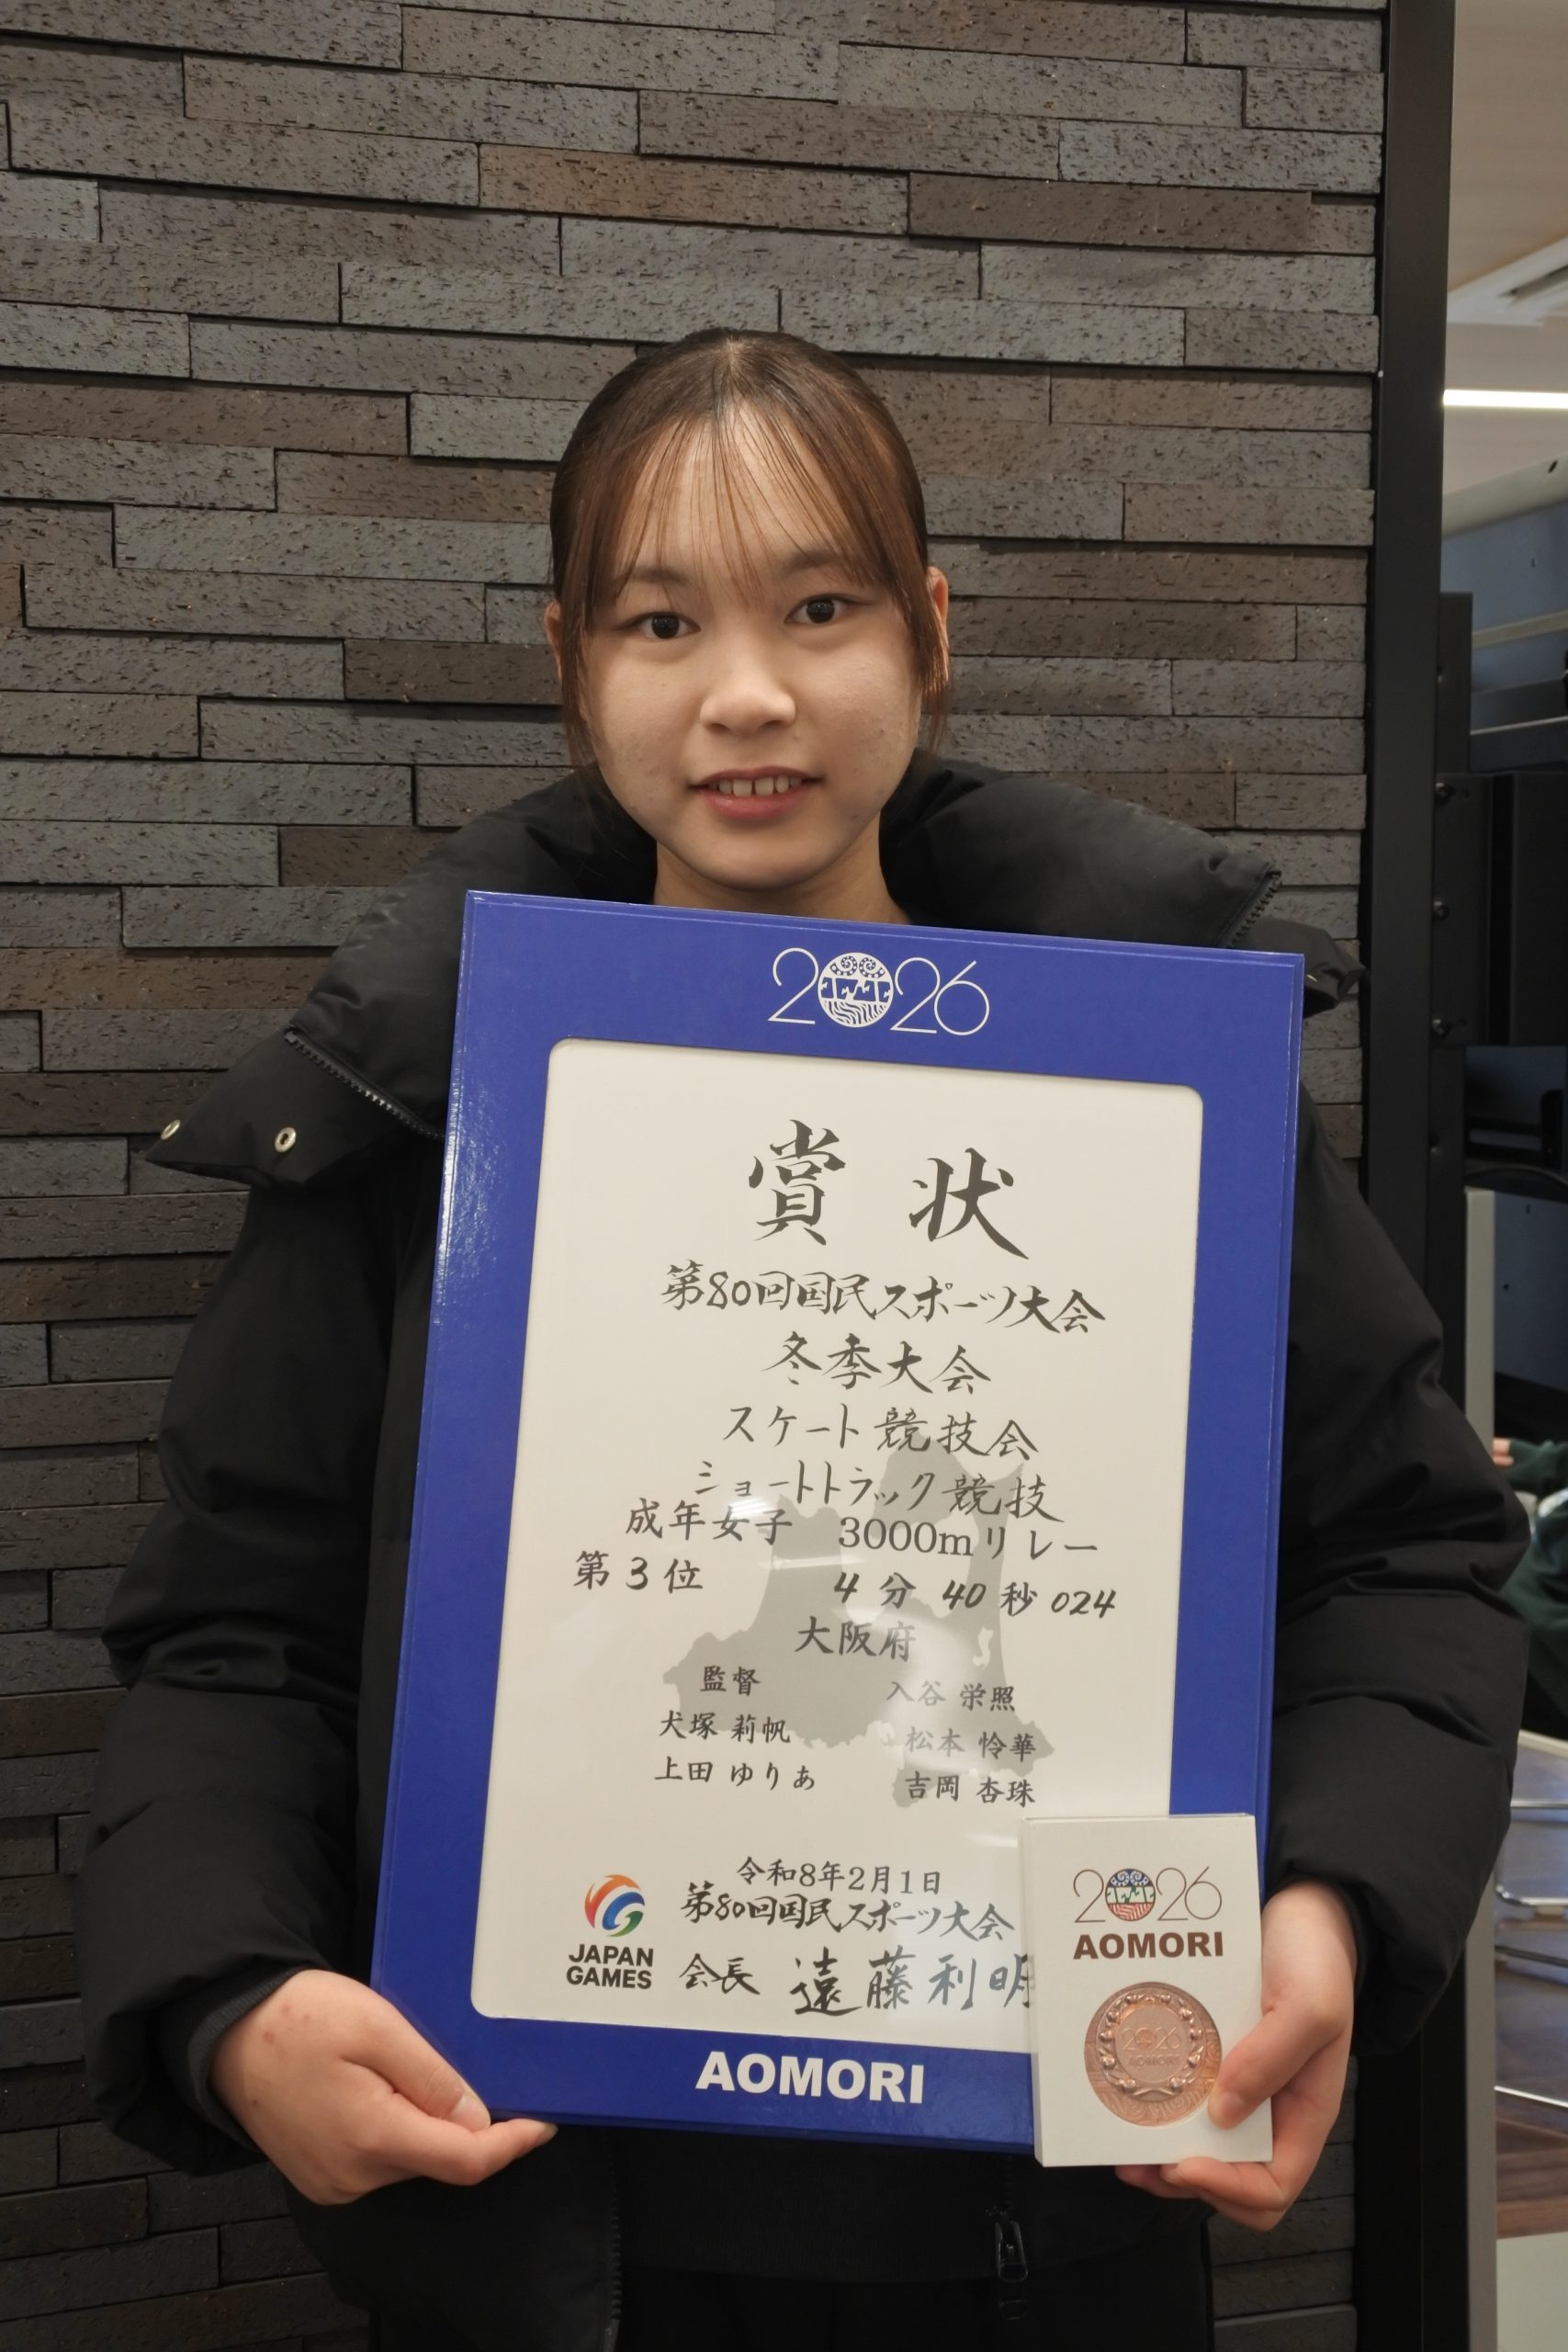 2026
賞状
第80回国民スポーツ大会
冬季大会
スケート競技会
ショートトラック競技
成年女子 3000mリレー
第3位 4分40秒024
大阪府
監督 入谷 栄照
犬塚 莉帆 松本 怜華
上田 ゆりあ 吉岡 杏珠
令和8年2月1日
第80回国民スポーツ大会
会長 遠藤利明
JAPAN
GAMES
AOMORI
2026
AOMORI
2026
AOMORI